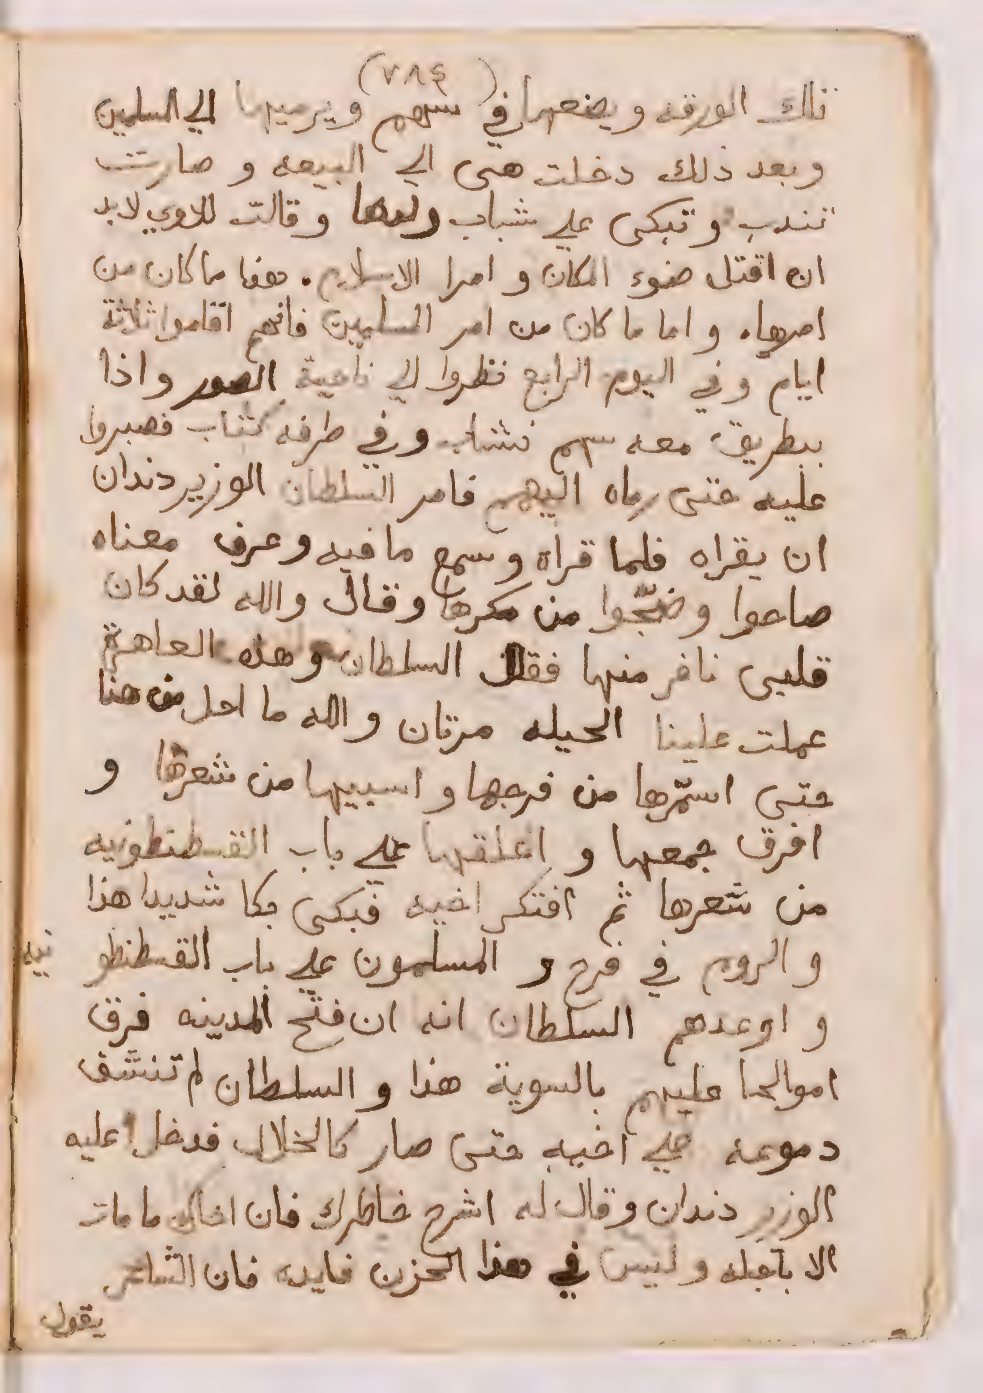 (٧٨٤)
تلك الورقه و يضعها في سهم و يرميها الي المسلمين
و بعد ذلك دخلت هى الي البيعه و صارت
تندب و تبكى علي شباب ولدها و قالت للاوي لابد
ان اقتل ضوء المكان و امرا الاسلام . هذا ما كان من
امرها. و اما ما كان من امر المسلمين فانهم اقاموا ثلاثة
ايام و في اليوم الرابع نظروا الي ناحية الصور و اذا
ببطريق معه سهم نشاب و في طرفه كتاب فصبروا
عليه حتى رماه اليهم فامر السلطان الوزير دندان
ان يقراه فلما قراه و سمع ما فيه و عرف معناه
صاحوا و ضجّوا من مكرها و قال والله لقد كان
قلبى نافر منها فقال السلطان و هذه العاهرة
عملت علينا الحيله مرتان والله ما احل من هنا
حتى اسمّرها من فرجها و اسبيها من شعرها و
افرق جمعها و اعلقها علي باب القسطنطونيه
من شعرها ثم افتكر اخيه فبكى بكا شديدا هذا
و الروم في فرح و المسلمون علي باب القسطنطو نيه
و اوعدهم السلطان انه ان فتح المدينه فرق
اموالها عليهم بالسوية هذا و السلطان لم تنشف
دموعه علي اخيه حتى صار كالخلال فدخل عليه
الوزير دندان و قال له اشرح خاطرك فان اخاك ما مات
الا بآجله و ليس في هذا الحزن فايده فان الشاعر
يقول